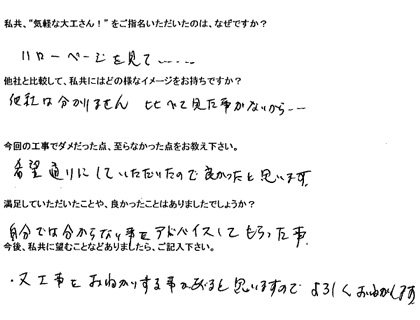 私共、"気軽な大工さん！" をご指名いただいたのは、なぜですか？
ハローページを見て……
他社と比較して、私共にはどの様なイメージをお持ちですか？
他社は分かりません 比べて見た事がないから……
今回の工事でダメだった点、至らなかった点をお教え下さい。
希望通りにしていただいたので良かったと思います。
満足していただいたことや、良かったことはありましたでしょうか？
自分では分からない事をアドバイスしてもらった事
今後、私共に望むことなどありましたら、ご記入下さい。
・又工事をおねがいする事があると思いますので よろしくおねがいします